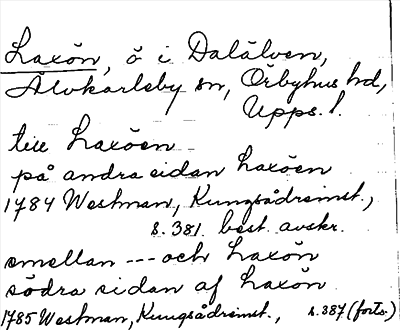 Laxön, ö i Dalälven,
Älvkarleby sn, Örbyhus hd,
Upps. l.
till Laxöen
på andra sidan Laxöen
1784 Westman, Kungsådreinst.,
s. 381. best. avskr.
emellan --- och Laxön
södra sidan af Laxön
1785 Westman, Kungsådreinst., s. 387 (forts.)